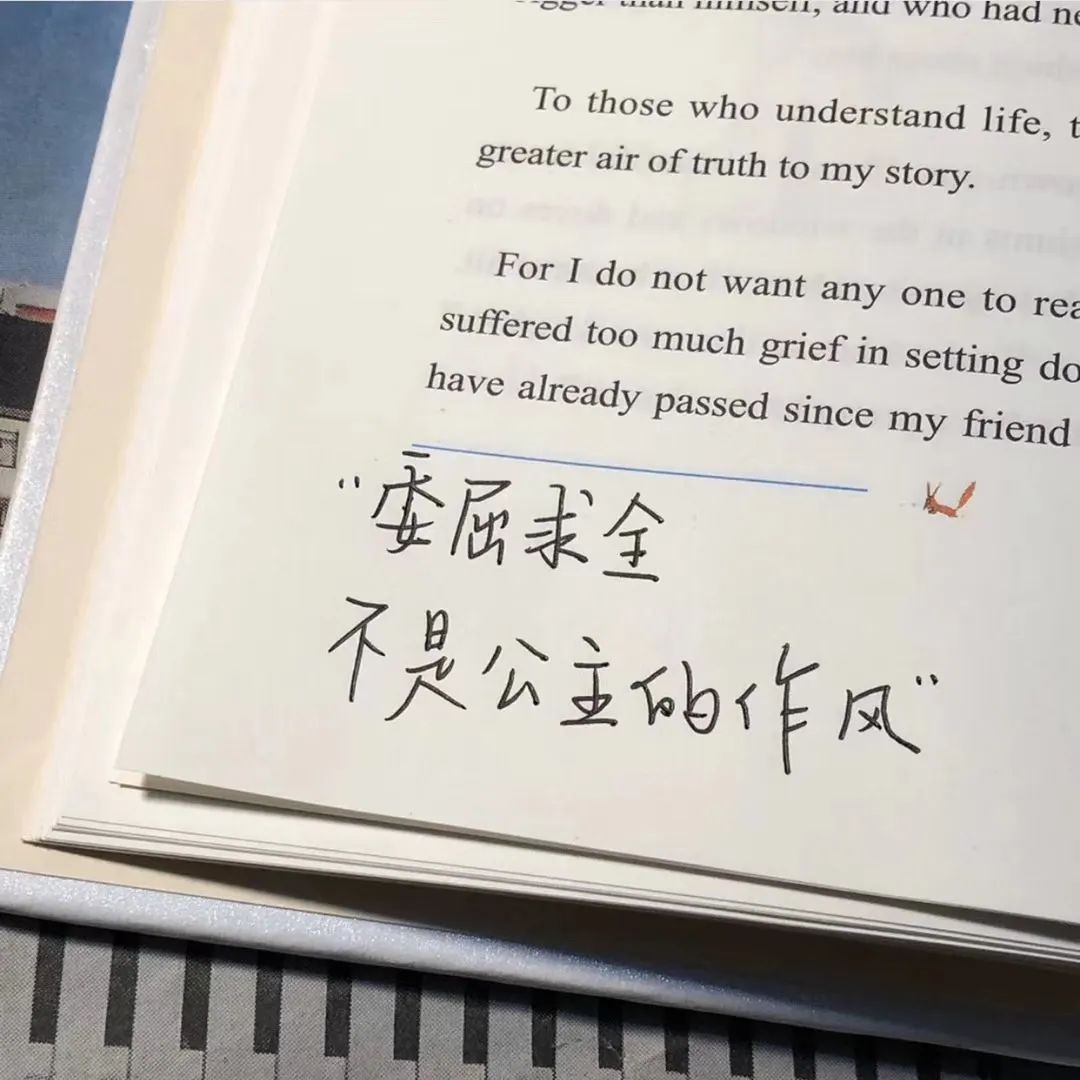 than himself, and who had
To those who understand life,
greater air of truth to my story.
For I do not want any one to
suffered too much grief in setting
have already passed since my friend
“委屈求全
不是公主的作风”